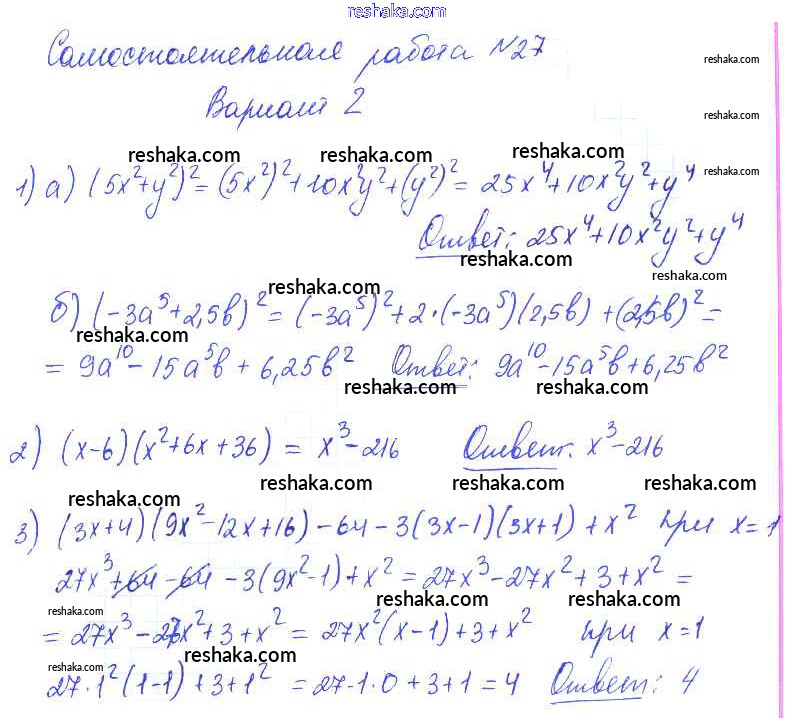 reshaka.com
Самостоятельная работа №27
reshaka.com
Вариант 2
reshaka.com
reshaka.com reshaka.com reshaka.com reshaka.com
1) а) (5x²+y²)² = (5x²)² + 10x²y² + (y²)² = 25x⁴+10x²y²+y⁴
Ответ: 25x⁴+10x²y²+y⁴
reshaka.com reshaka.com
reshaka.com
б) (-3a⁵+2,5b)² = (-3a⁵)²+2·(-3a⁵)(2,5b)+(2,5b)² =
reshaka.com reshaka.com
= 9a¹⁰-15a⁵b+6,25b² Ответ: 9a¹⁰-15a⁵b+6,25b²
reshaka.com reshaka.com
reshaka.com
2) (x-6)(x²+6x+36) = x³-216 Ответ: x³-216
reshaka.com reshaka.com reshaka.com
reshaka.com
3) (3x+4)(9x²-12x+16)-64-3(3x-1)(3x+1)+x² при x=1
reshaka.com
27x³+64-64-3(9x²-1)+x² = 27x³-27x²+3+x² =
reshaka.com reshaka.com reshaka.com
= 27x³-27x²+3+x² = 27x²(x-1)+3+x² при x=1
reshaka.com reshaka.com reshaka.com
27·1²(1-1)+3+1² = 27·1·0+3+1=4 Ответ: 4